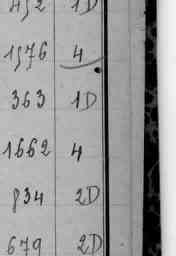 452 1D
1576 4
363 1D
1662 4
834 2D
679 2D